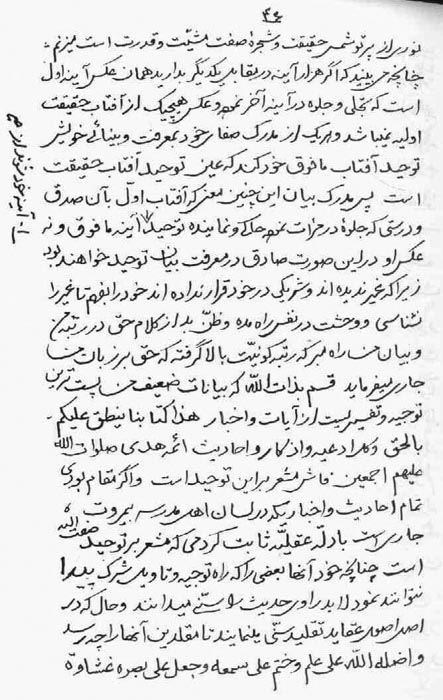 ۳۴
نوری از پرتو شمس حقیقت و شجرهٔ صفت مشیّت و قدرت است میزنم
چنانچه می بینید که اگر هزار آینه در مقابل یکدیگر بدارید همان عکس آینه اول
است که تجلی و جلوه در آینه آخر نموده و عکس هیچیک از آفتاب حقیقت
اولیه نمیباشد و هریک از مدرک صفا خود بمعرفت و بینائے خویش
توحید آفتاب مافوق خود کنند که عین توحید آفتاب حقیقت
است پس مدرک بیان این چنین معنی که آفتاب اول بآن صدق
و درستی که جلوهٔ در مرآت نموده حاکی و نماینده توحید آینه مافوق و نه
عکس او در این صورت صادق در معرفت بیان توحید خواهند بود
زیرا که غیر ندیده اند و شریکی در خود قرار نداده اند خود را بفهم تا غیر را
نشناسی و وحشت در نفس راه مده و ظنّ بد از کلام حق در رتبه من
و بیان من راه مبر که رتبه کونیت بالا گرفته که حق بر زبان ما
جاری میفرماید قسم بذات الله که بیانات ضعیف من پست ترین
توجیه و تفسیر است از آیات و اخبار هذا کتابنا ینطق علیکم
بالحق و کل ادعیه و اذکار و احادیث ائمه هدی صلوات الله
علیهم اجمعین فاش مشعر بر این توحید است و اگر مقام بودی
تمام احادیث و اخباریکه در لسان اهل مدرسه بیروت
جاری است بادلّه عقلیّه ثابت کردمی که مشعر بر توحید صفت اله
است چنانچه خود آنها بعضی را که راه توجیه و تاویل شرک پیدا
نتوانند نمود لابد راوی حدیث را سنّی میدانند و حال که در
اصل اصول عقاید تقلید سنّی مینمایند تا مقلدین آنها را چه رسد
و اضله الله علی علم و ختم علی سمعه و جعل علی بصره غشاوة